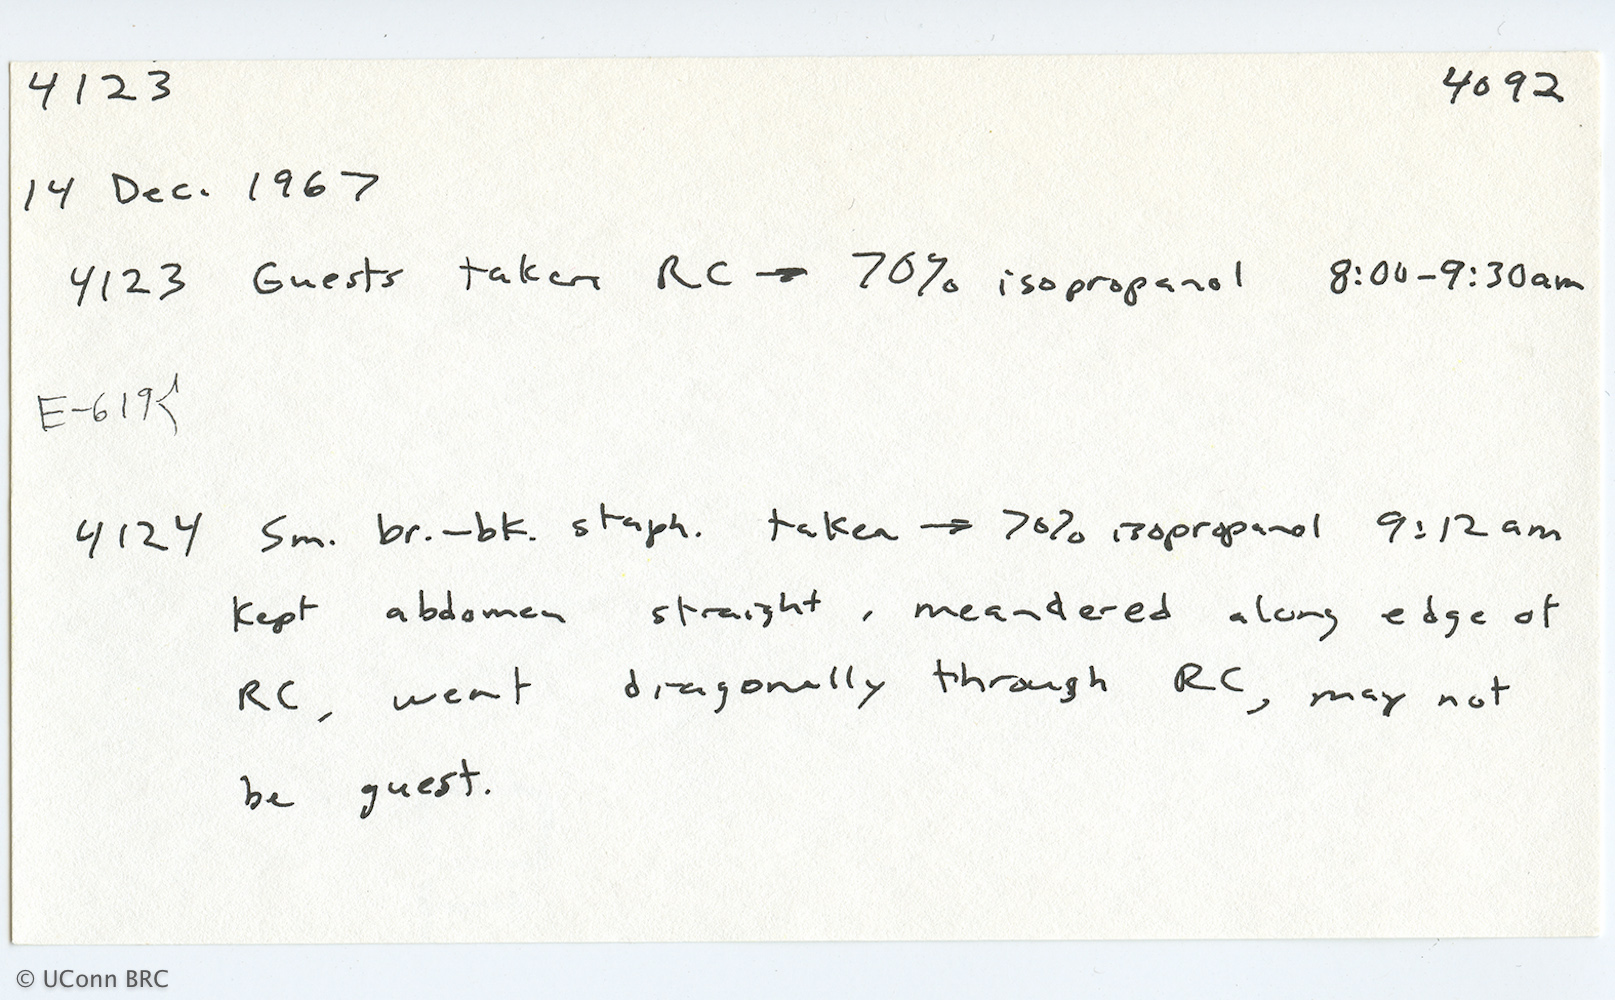 4123 4092
14 Dec. 1967
4123 Guests taken RC → 70% isopropanol 8:00-9:30am
E-619{
4124 Sm. br.-bk. staph. taken → 70% isopropanol 9:12 am
Kept abdomen straight, meandered along edge of
RC, went diagonally through RC, may not
be guest.
© UConn BRC